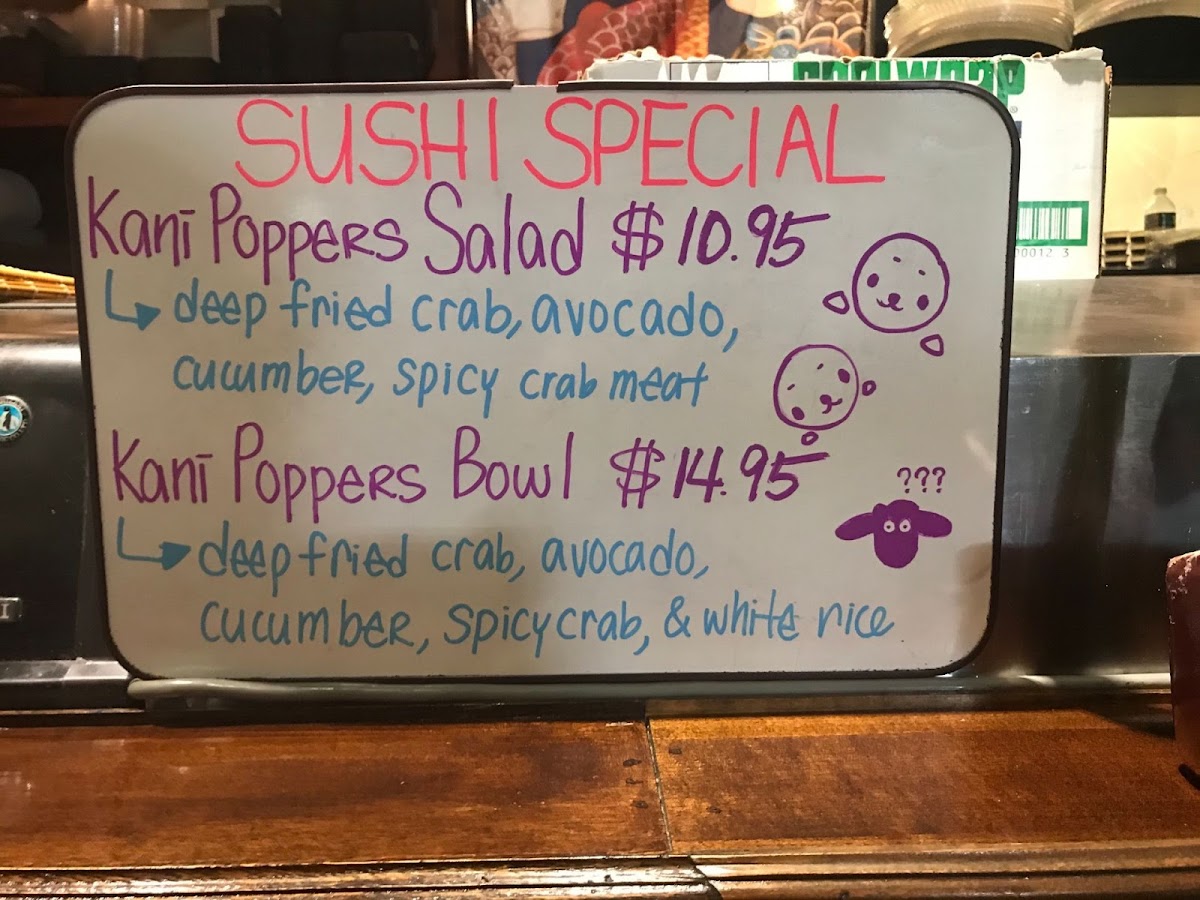 SUSHI SPECIAL
Kani Poppers Salad $10.95
deep fried crab, avocado,
cucumber, spicy crab meat
Kani Poppers Bowl $14.95
???
deep fried crab, avocado,
cucumber, spicy crab, & white rice
00012 3